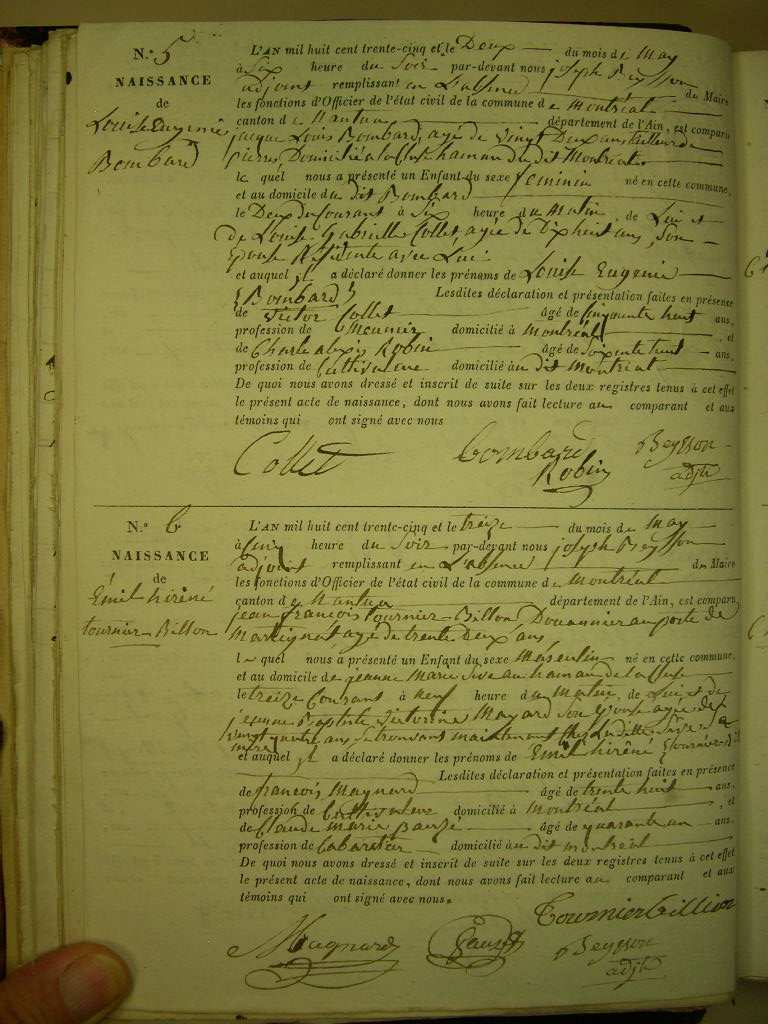 N.º 5
NAISSANCE
de
Louise Eugenie
Bombard
L'AN mil huit cent trente-cinq et le Deux du mois de May
à Six heure du Soir par-devant nous joseph Beysson
adjoint remplissant en L'absence du Maire
les fonctions d'Officier de l'état civil de la commune de Montréal
canton de Nantua département de l'Ain, est comparu
jacque Louis Bombard, agé de vingt Deux ans tailleur de
pierres Domicilié a la Cluse hamau du dit Montréal.
le quel nous a présenté un Enfant du sexe feminin né en cette commune,
et au domicile du dit Bombard
le Deux du Courant à Six heure du Matin, de Lui et
de Louise Gabrielle Collet, agée de Dixheut ans, Son
Epouse Résidente avec Lui
et auquel il a déclaré donner les prénoms de Louise Eugenie
{Bombard} Lesdites déclaration et présentation faites en présence
de Victor Collet âgé de cinquante heut ans,
profession de Meunier domicilié à Montréal, et
de Charle alexis Robin âgé de Soixente heut ans,
profession de Cultivateur domicilié au dit Montréal
De quoi nous avons dressé et inscrit de suite sur les deux registres tenus à cet effet
le présent acte de naissance, dont nous avons fait lecture au comparant et aux
témoins qui ont signé avec nous
Collet Bombard Beysson
Robin adjt
N.º 6
NAISSANCE
de
Émil hiréné
tournier-Billon
L'AN mil huit cent trente-cinq et le treize du mois de May
à Cinq heure du Soir par-devant nous joseph Beysson
adjoint remplissant en L'absence du Maire
les fonctions d'Officier de l'état civil de la commune de Montréal
canton de Nantua département de l'Ain, est comparu
jean françois tournier-Billon, Douannier au poste de
Martignat agé de trente Deux ans
le quel nous a présenté un Enfant du sexe Masculin né en cette commune,
et au domicile de jeanne Marie Sive au hamau de la Cluse
le treize Courant à neuf heure du Matin, de Lui et de
jeanne Baptiste Victorine Mayard Son Epouse agée de
vingt quatre ans Se trouvant maintenant chez La ditte Sive Sa
mere
et auquel il a déclaré donner les prénoms de Emil hiréné {tournier-Bil
Lesdites déclaration et présentation faites en présence
de francois Maynard âgé de trente huit ans,
profession de Cultivateur domicilié à Montréal, et
de Claude Marie âgé de quarante un ans,
profession de Cabaretier domicilié au dit Montréal
De quoi nous avons dressé et inscrit de suite sur les deux registres tenus à cet effet
le présent acte de naissance, dont nous avons fait lecture au comparant et aux
témoins qui ont signé avec nous.
Tournier billion
Maynard Beysson
adjt